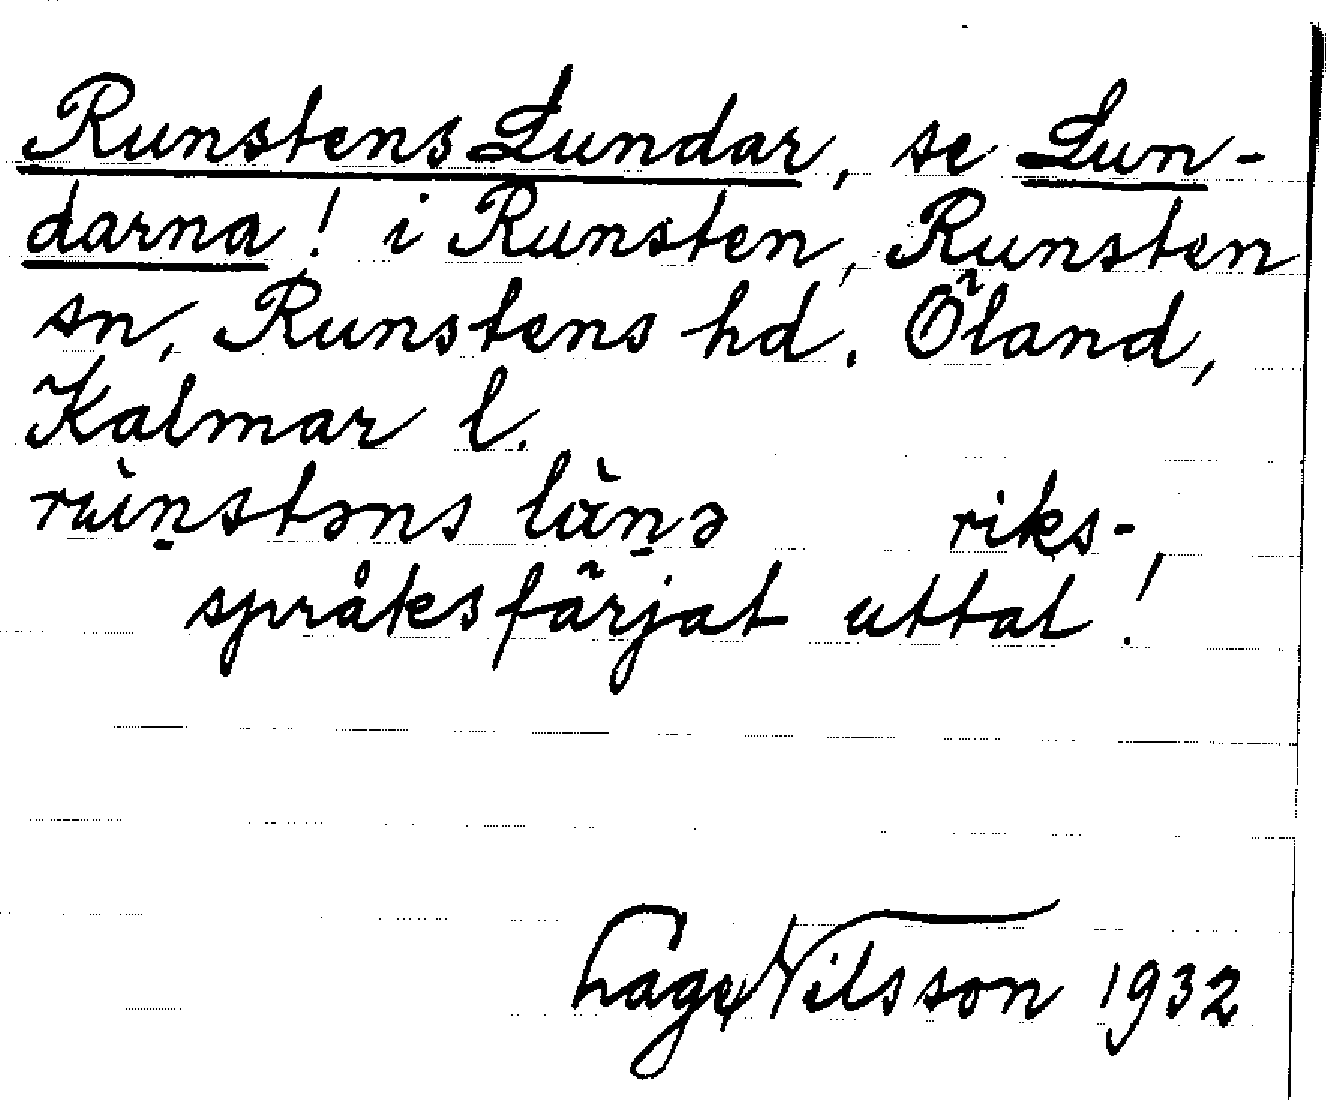 Runstens Lundar, se Lun-
darna! i Runsten, Runsten
sn, Runstens hd. Öland,
Kalmar l.
riks-
språksfärjat uttal!
Nilsson 1932